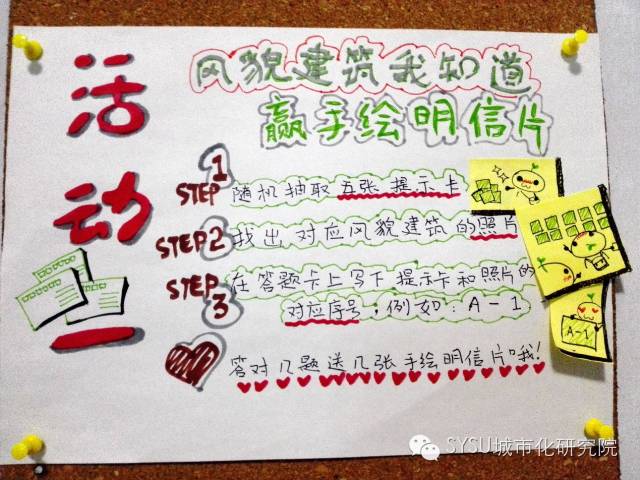 活动一
风貌建筑我知道
赢手绘明信片
STEP 1 随机抽取五张提示卡
STEP 2 找出对应风貌建筑的照片
STEP 3 在答题卡上写下提示卡和照片的
对应序号，例如：A-1
答对几题送几张手绘明信片哦！
A-1
SYSU城市化研究院